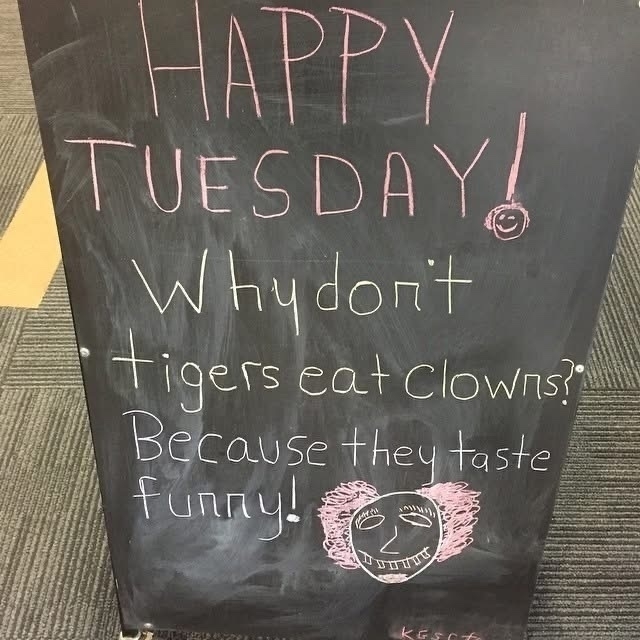 HAPPY
TUESDAY!
Why don't
tigers eat clowns?
Because they taste
funny!